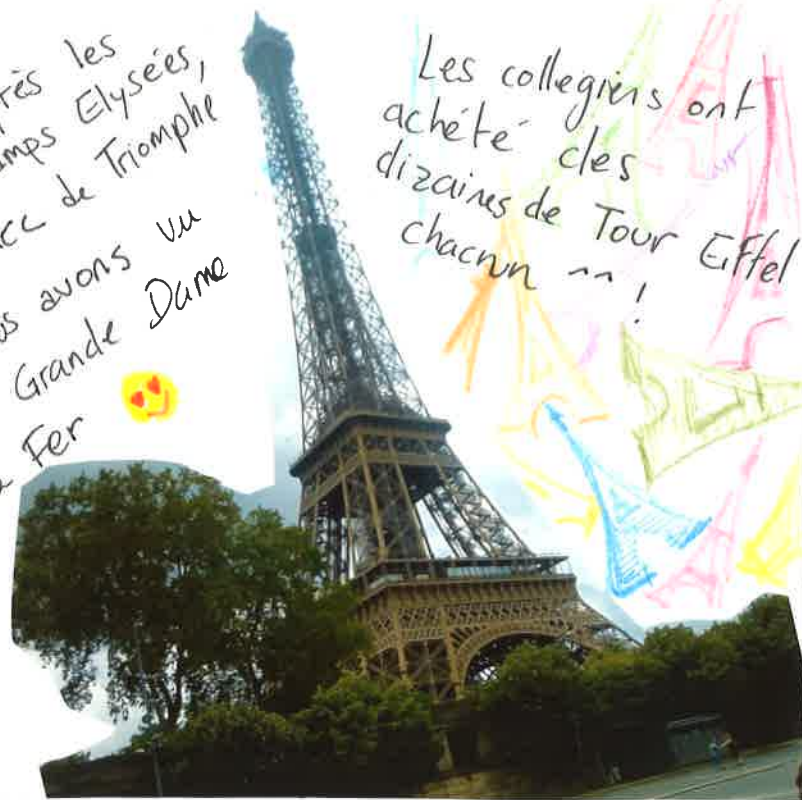 les
Elysées,
de Triomphe
avons vu
Grande Dame
Fer
Les collegiens ont
achété des
dizaines de Tour Eiffel
chacun ^^ !